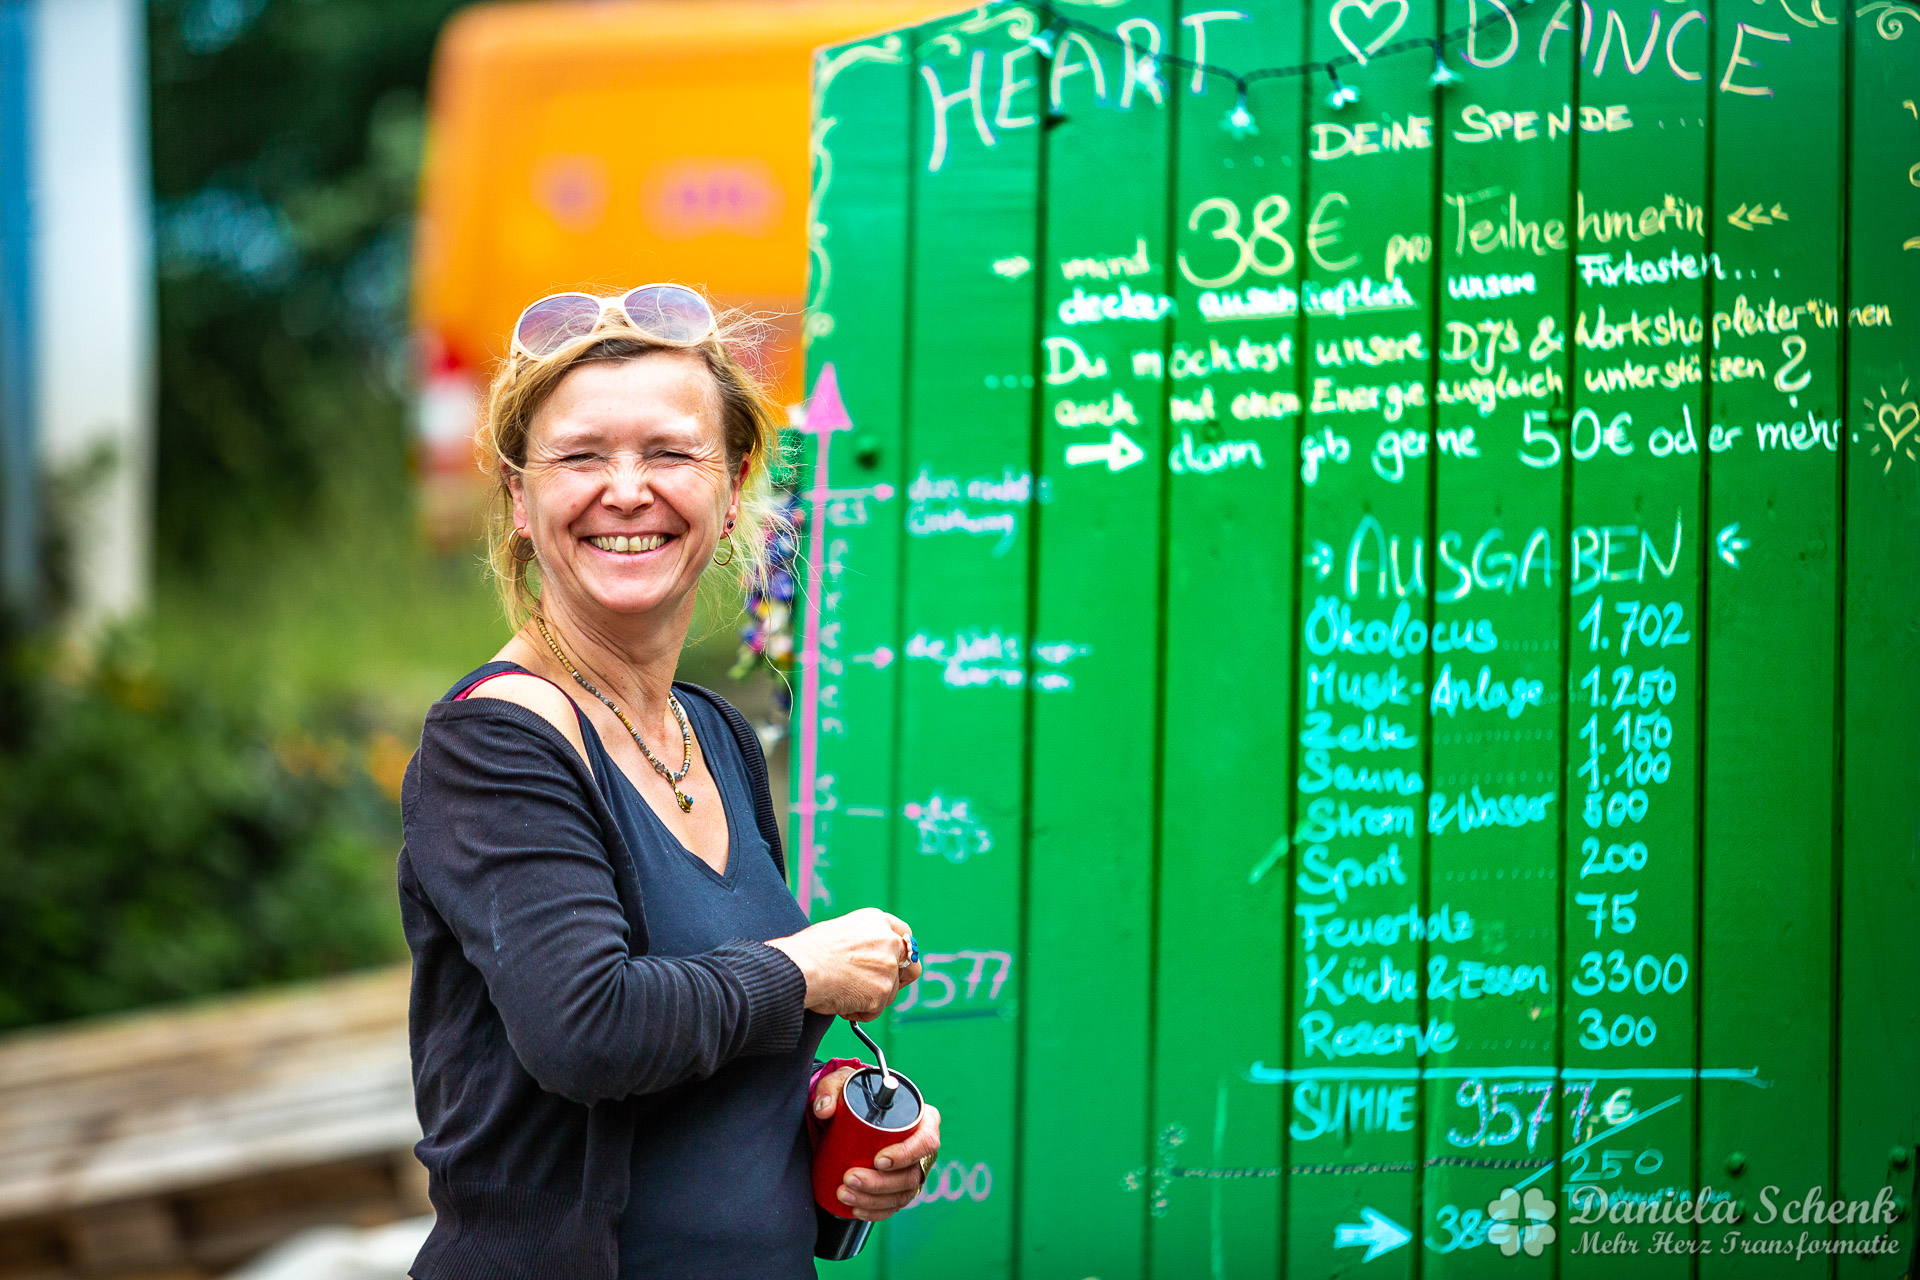 HEART ♡ DANCE
DEINE SPENDE ...
mind. 38€ pro Teilnehmer*in <<<
decken ausschließlich unsere Fixkosten...
... Du möchtest unsere DJ's & Workshopleiter*innen
auch mit einen Energieausgleich unterstützen?
dann gib gerne 50€ oder mehr.
AUSGABEN
Ökolocus ..... 1.702
Musik-Anlage 1.250
Zelte ..... 1.150
Sauna ..... 1.100
Strom & Wasser 500
Sprit ..... 200
Feuerholz ..... 75
Küche & Essen 3300
Reserve ..... 300
SUMME 9577,€
250
die
DJ's
9577
000
Daniela Schenk
Mehr Herz Transformatie